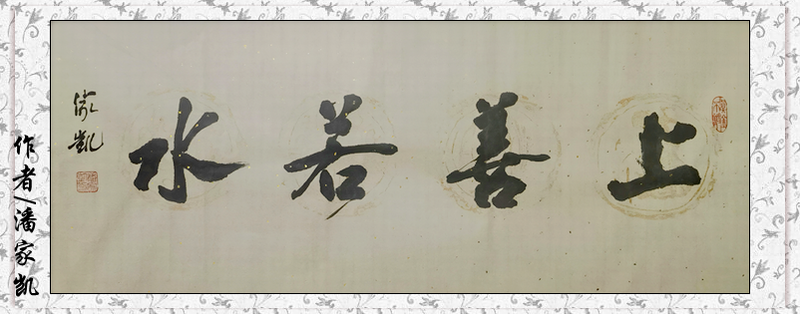 上善若水
家凱
作者/潘家凯